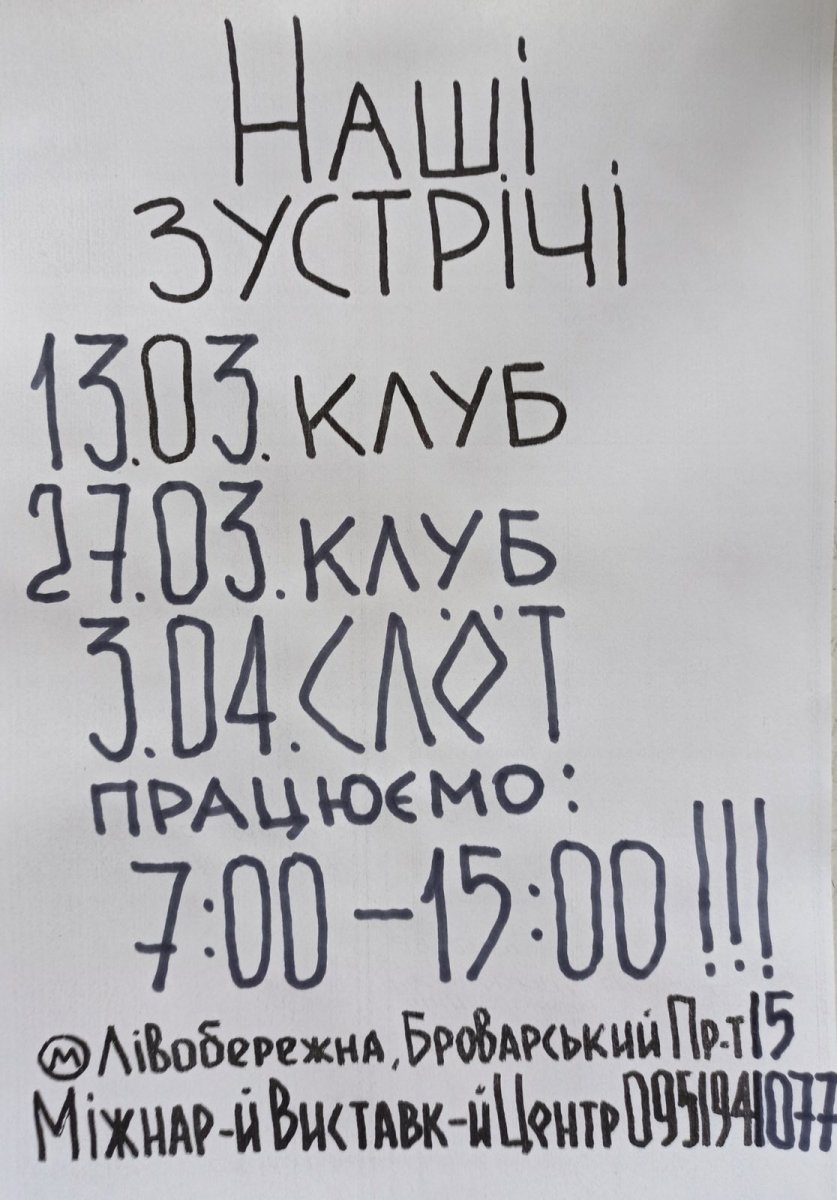 Наші
зустрічі
13.03. клуб
27.03. клуб
3.04. СЛЁТ
працюємо:
7:00 – 15:00 !!!
Ⓜ Лівобережна, Броварський Пр-т 15
Міжнар-й Виставк-й Центр 0951941077